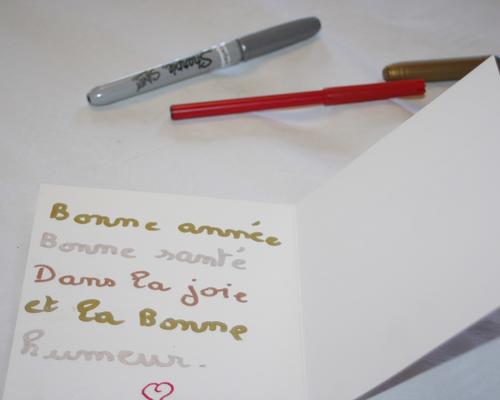 Sharpie
Bonne année
Bonne santé
Dans la joie
et la Bonne
humeur.